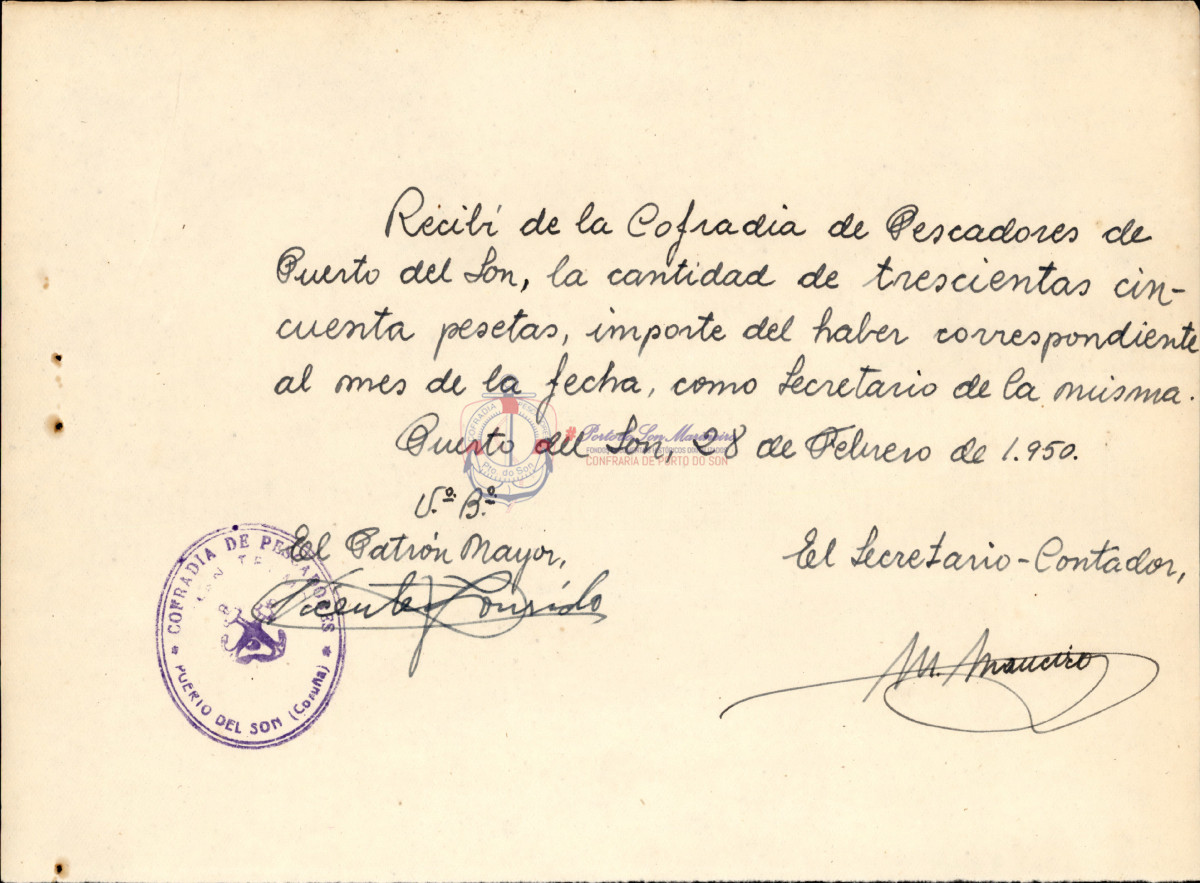 Recibí de la Cofradia de Pescadores de
Puerto del Son, la cantidad de trescientas cin-
cuenta pesetas, importe del haber correspondiente
al mes de la fecha, como Secretario de la misma.
Puerto del Son, 28 de Febrero de 1.950.
V.º B.º
El Patrón Mayor,
El Secretario-Contador,
Vicente
M. Maneiro
COFRADIA DE PESCADORES
PUERTO DEL SON (Coruña)
COFRADIA PESCADORES
Pto. do Son
#Porto do Son Mariñeiro
CONFRARIA DE PORTO DO SON